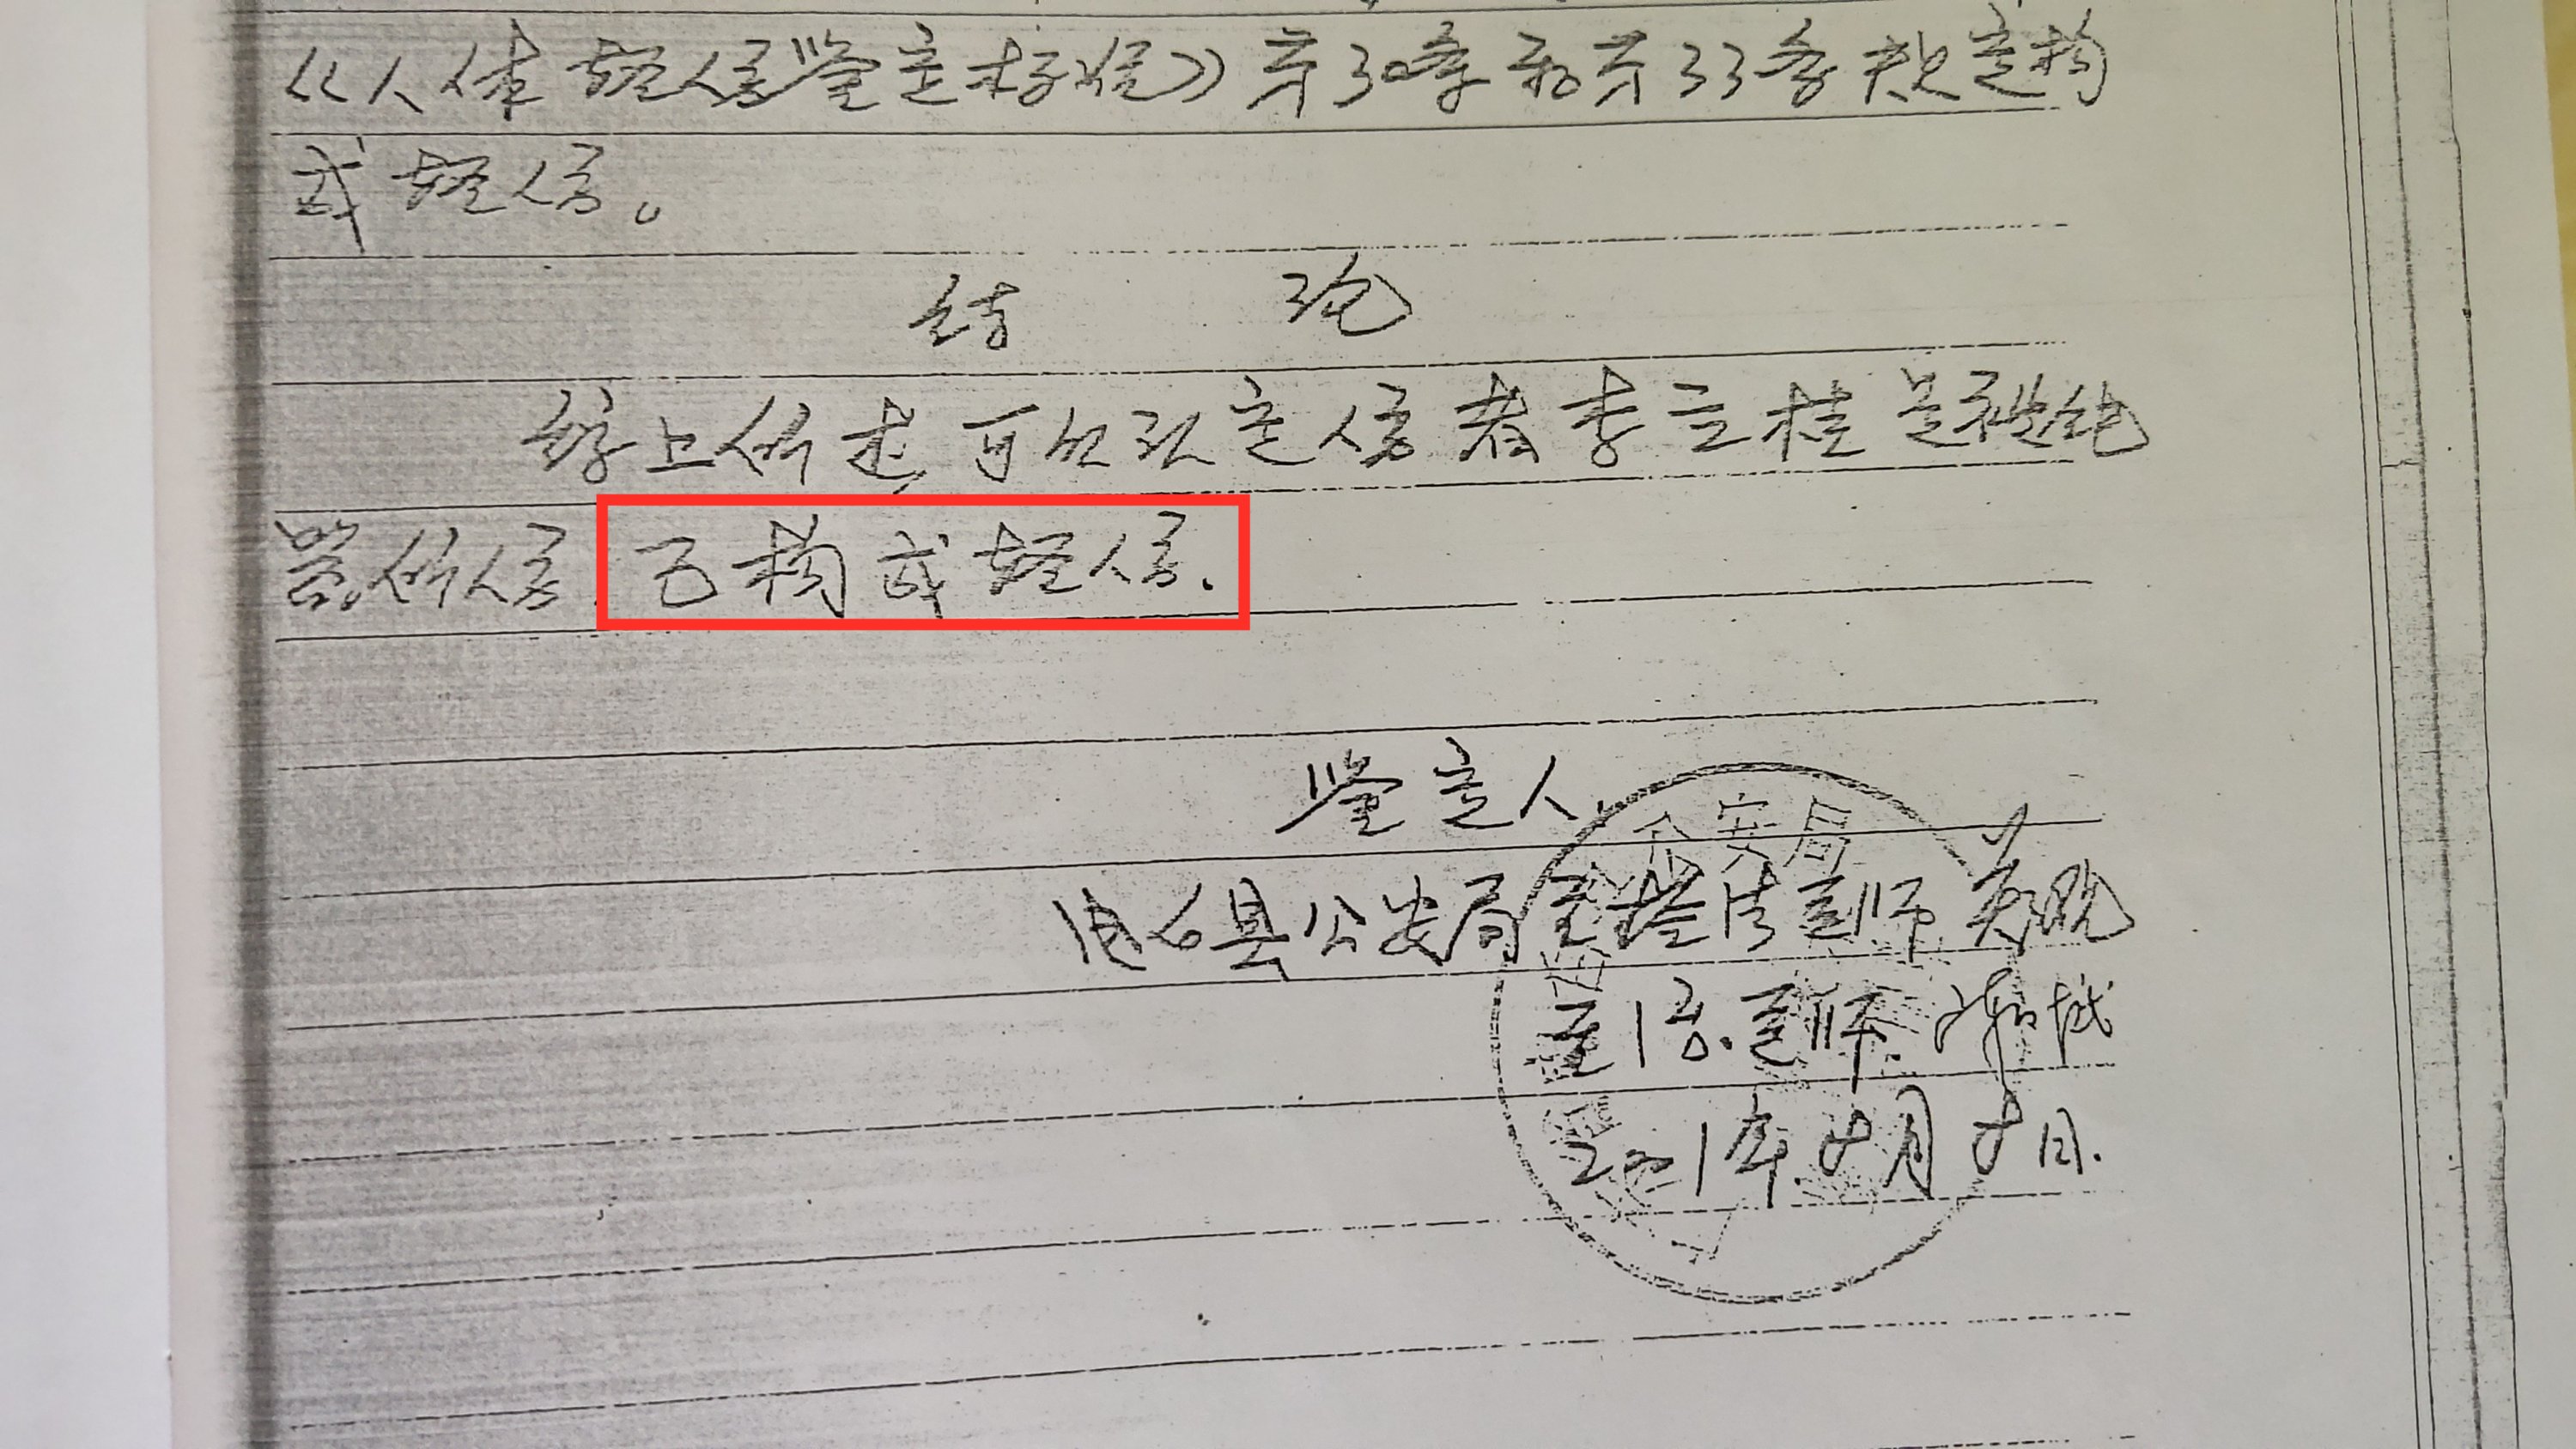 《人体轻伤鉴定标准》第30条和第33条款定构
成轻伤。
结 论
综上所述,可以认定伤者李立桂是被钝
器所伤,已构成轻伤.
鉴定人.
县公安局主检法医师
主检法医师
2001年 月 日.
公安局